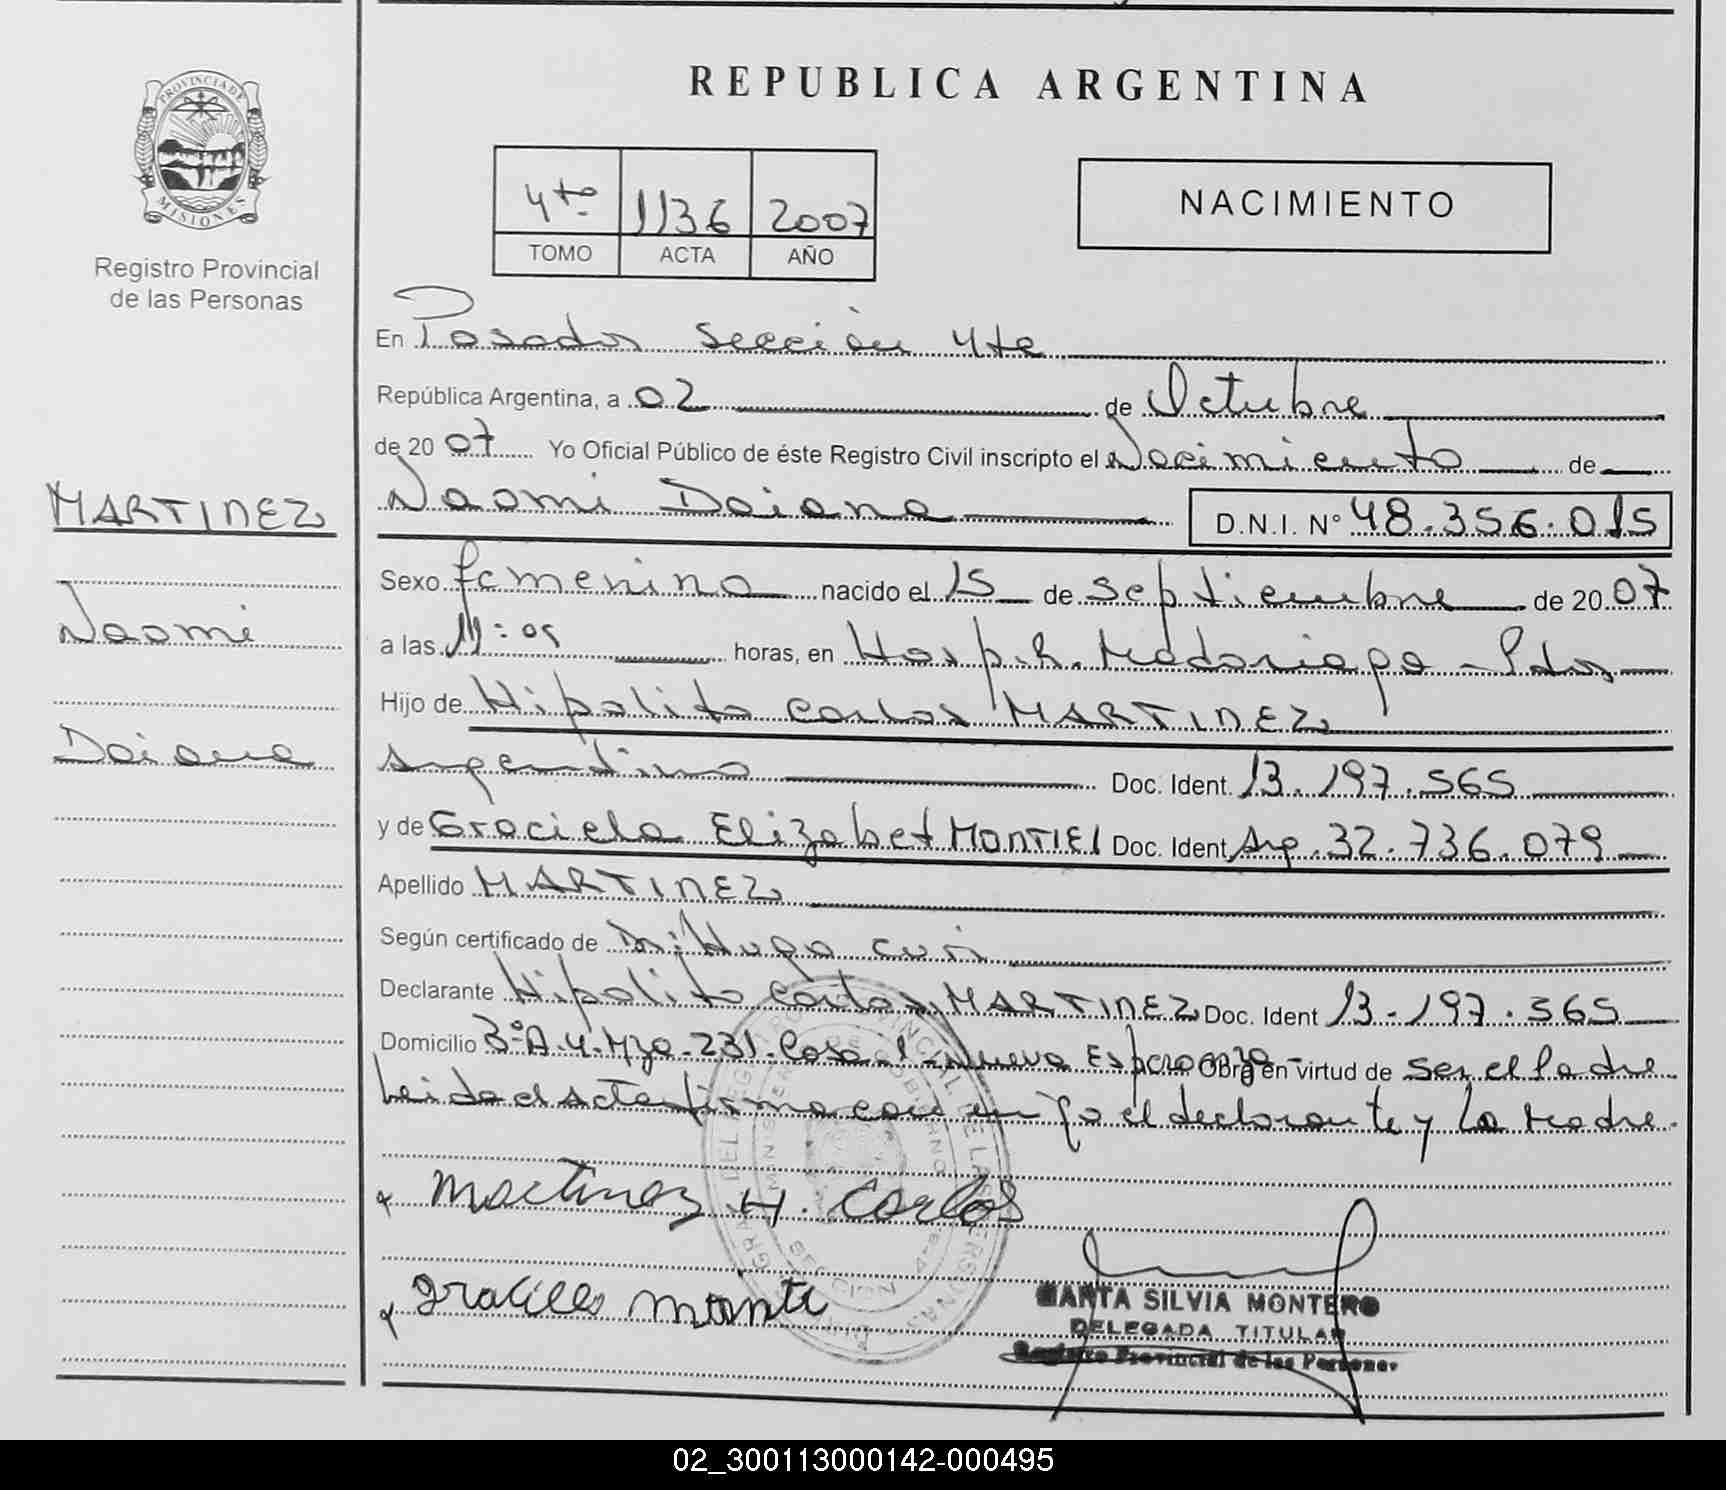 PROVINCIA DE
MISIONES
Registro Provincial
de las Personas
MARTINEZ
Naomi
Daiana
REPUBLICA ARGENTINA
4to 1136 2007
TOMO ACTA AÑO
NACIMIENTO
En Posadas sección 4ta
República Argentina, a 02 de Octubre
de 2007 Yo Oficial Público de éste Registro Civil inscripto el Nacimiento de
Naomi Daiana D.N.I. Nº 48.356.015
Sexo femenino nacido el 15 de septiembre de 2007
a las 11:05 horas, en Hosp. R. Madariaga - Pdas
Hijo de Hipolito Carlos MARTINEZ
Argentino Doc. Ident. 13.197.565
y de Graciela Elizabet MONTIEL Doc. Ident Arg. 32.736.079
Apellido MARTINEZ
Según certificado de Dr: Hugo
Declarante Hipolito Carlos MARTINEZ Doc. Ident 13.197.565
Domicilio 3ºA.4.Mza.231.Casa.1-Nueva Esperanza- Obra en virtud de ser el Padre
Leida el acta firma con migo el declarante y la Madre.
Martinez H. Carlos
MARTA SILVIA MONTERO
DELEGADA TITULAR
Registro Provincial de las Personas
02_300113000142-000495